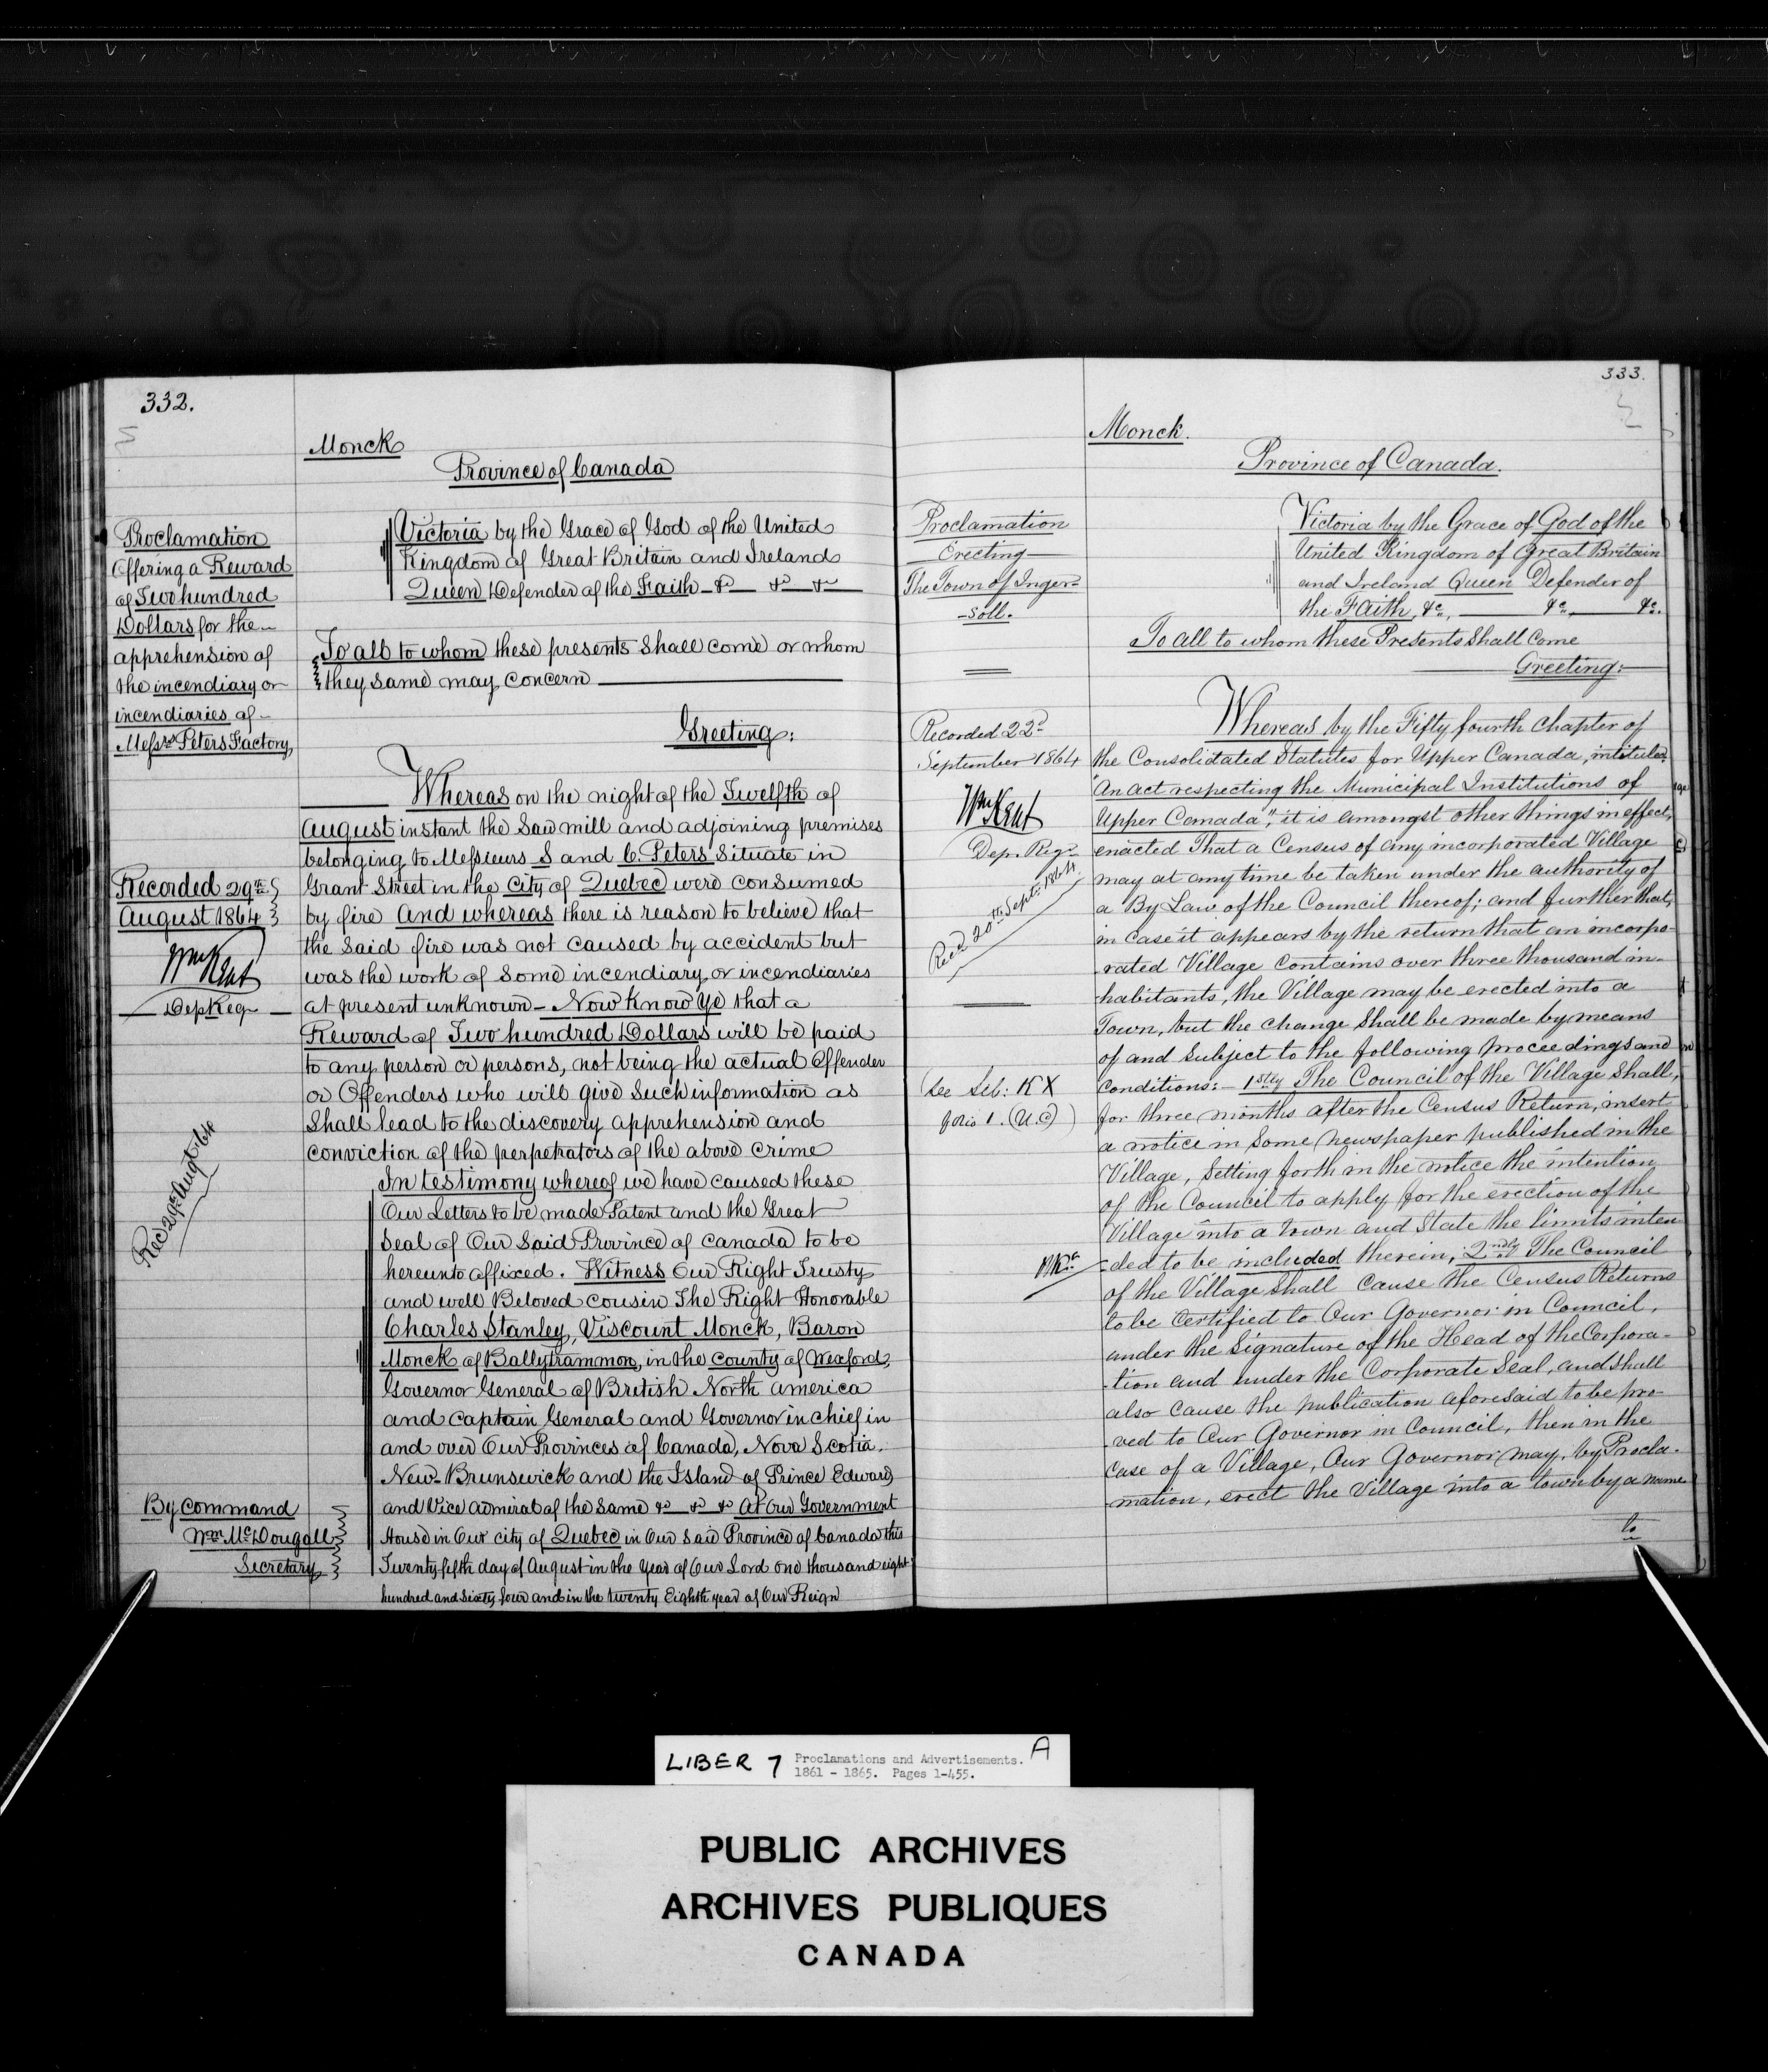 332.
Monck
Province of Canada
Proclamation
Offering a Reward
of Two hundred
Dollars for the
apprehension of
the incendiary or
incendiaries of
Messrs Peters Factory,
Recorded 29th
August 1864
Wm Kent
Dep Reg
Rec 29th Augt 64
By Command
Wm McDougall
Secretary
Victoria by the Grace of God of the United
Kingdom of Great Britain and Ireland
Queen Defender of the Faith - &c &c &c
To all to whom these presents Shall come or whom
they same may concern
Greeting:
Whereas on the night of the Twelfth of
August instant the Saw mill and adjoining premises
belonging to Messieurs S and C. Peters Situate in
Grant Street in the City of Quebec were consumed
by fire and whereas there is reason to believe that
the Said fire was not caused by accident but
was the work of Some incendiary or incendiaries
at present unknown - Now Know Ye that a
Reward of Two hundred Dollars will be paid
to any person or persons, not being the actual Offender
or Offenders who will give Such information as
Shall lead to the discovery apprehension and
conviction of the perpetrators of the above crime
In testimony whereof we have caused these
Our Letters to be made Patent and the Great
Seal of Our Said Province of Canada to be
hereunto affixed. Witness Our Right Trusty
and well Beloved cousin The Right Honorable
Charles Stanley, Viscount Monck, Baron
Monck of Ballytrammon, in the county of Wexford,
Governor General of British North America
and Captain General and Governor in chief in
and over Our Provinces of Canada, Nova Scotia,
New Brunswick and the Island of Prince Edward
and Vice Admiral of the Same &c &c &c At Our Government
House in Our city of Quebec in Our Said Province of Canada this
Twenty fifth day of August in the Year of Our Lord one thousand eight
hundred and Sixty four and in the twenty Eighth year of Our Reign
333.
Monck.
Province of Canada.
Proclamation
Erecting
The Town of Inger-
-soll.
Recorded 22d
September 1864
Wm Kent
Dep. Regr
Recd 20th Sept: 1864.
See Lib: K X
folio 1. (U.C)
Victoria by the Grace of God of the
United Kingdom of Great Britain
and Ireland Queen Defender of
the Faith, &c, &c, &c.
To all to whom these Presents Shall Come
Greeting:
Whereas by the Fifty fourth Chapter of
the Consolidated Statutes for Upper Canada, intituled
"An act respecting the Municipal Institutions of
Upper Canada", it is amongst other things in effect,
enacted That a Census of any incorporated Village
may at any time be taken under the authority of
a By Law of the Council thereof; and further that,
in case it appears by the return that an incorpo-
-rated Village Contains over three thousand in-
-habitants, the Village may be erected into a
Town, but the change Shall be made by means
of and Subject to the following proceedings and
conditions: - 1stly The Council of the Village Shall,
for three months after the Census Return, insert
a notice in Some Newspaper published in the
Village, Setting forth in the notice the intention
of the Council to apply for the erection of the
Village into a town and State the limits inten
-ded to be included therein, 2ndly The Council
of the Village Shall cause the Census Returns
to be Certified to Our Governor in Council,
under the Signature of the Head of the Corpora-
-tion and under the Corporate Seal, and Shall
also Cause the publication aforesaid to be pro-
-ved to Our Governor in Council, then in the
Case of a Village, Our Governor may, by Procla-
-mation, erect the Village into a town by a name
to
LIBER 7 Proclamations and Advertisements. A
1861 - 1865. Pages 1-455.
PUBLIC ARCHIVES
ARCHIVES PUBLIQUES
CANADA